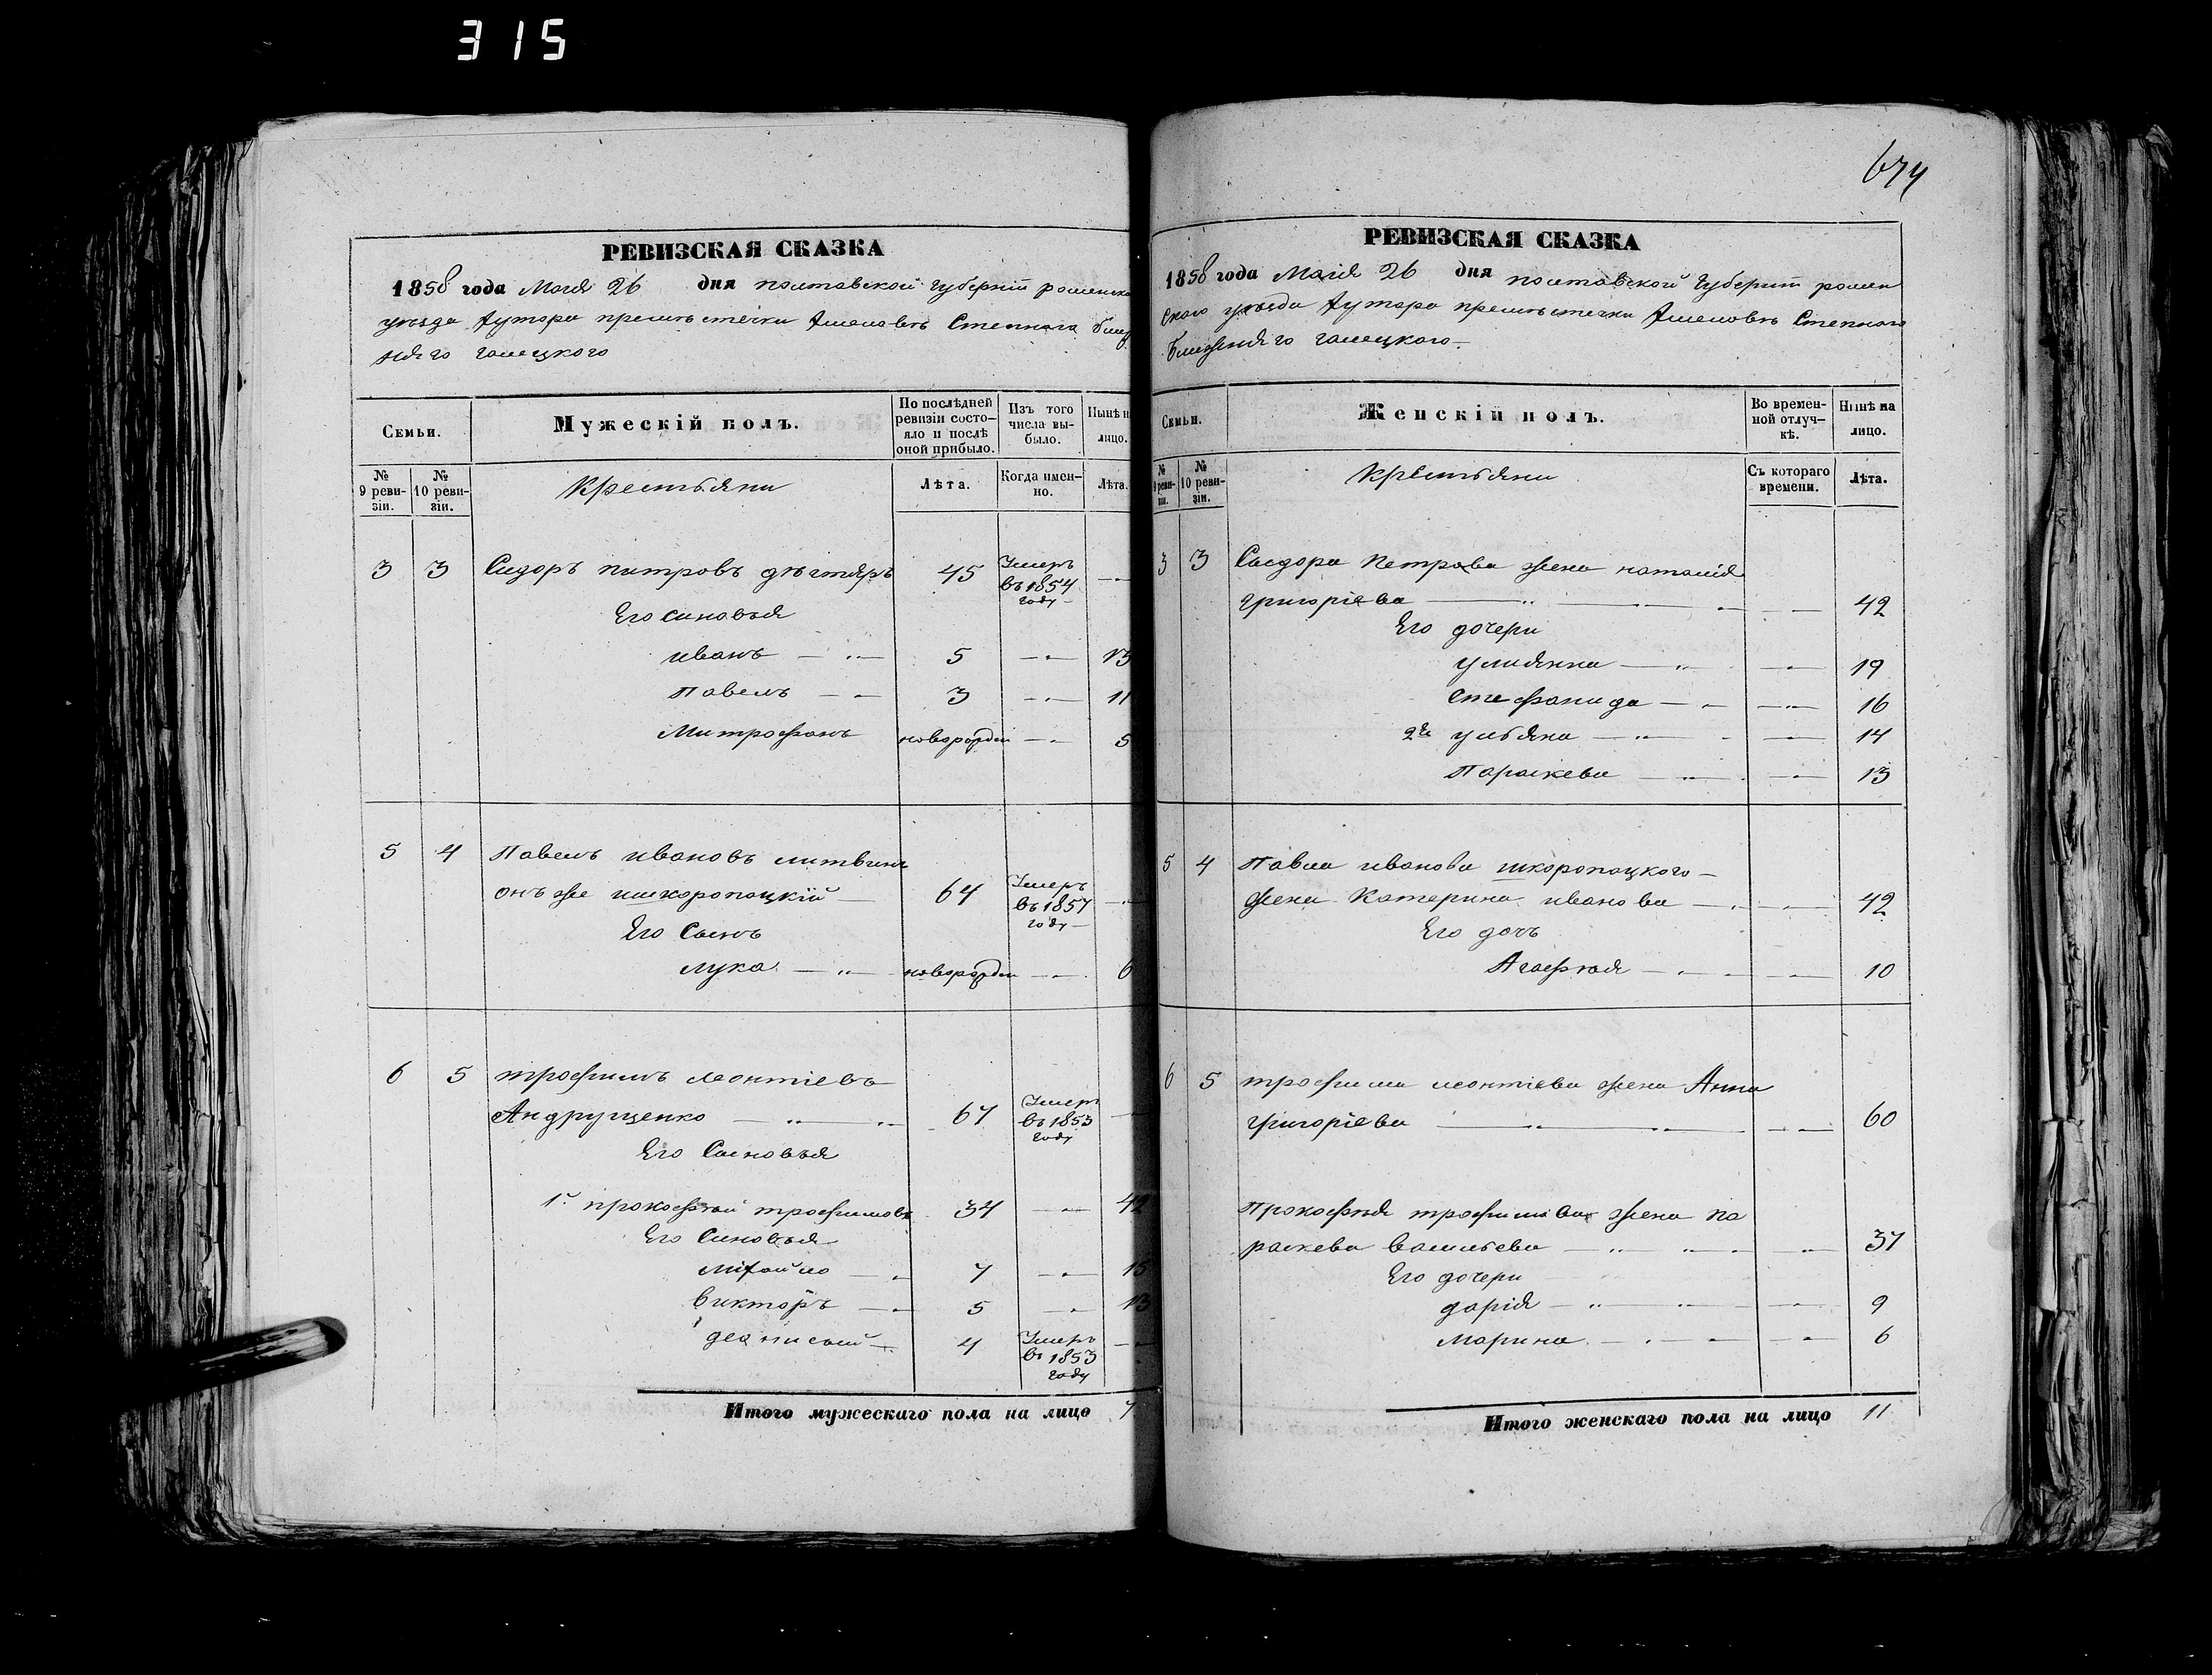 315
674
РЕВИЗСКАЯ СКАЗКА
1858 года Мая 26 дня полтавской губернiи роменска
уезда хутора при местечки Смелова Степного ближ
няго галецкого
Семьи.
Мужескій полъ.
По послѣдней ревизіи состо-яло и послѣ оной прибыло.
Изъ того числа вы-было.
Нынѣ н лицо.
№ 9 реви-зіи.
№ 10 реви-зіи.
Крестьяни
Лѣта.
Когда имен-но.
Лѣта.
3 3 Сидоръ питровъ дѣгтяръ 45 Умеръ въ 1854 году
Его синовья
иванъ 5 13
Павелъ 3 11
Митрофанъ новорожден 5
5 4 Павелъ ивановъ литвинъ
онъ же шкоропацкій 64 Умеръ въ 1857 году
Его Сынъ
лука новорожден 6
6 5 трофимъ леонтіевъ
Андрущенко 67 Умеръ въ 1853 году
Его Сыновья
1й прокофій трофимовъ 34 42
Его Синовья
Михайло 7 15
викторъ 5 13
деонисий 4 Умеръ въ 1853 году
Итого мужескаго пола на лицо 7
РЕВИЗСКАЯ СКАЗКА
1858 года Мая 26 дня полтавской губернiи ромен
скаго уезда хутора при местечки Смелова Степного
ближняго галецкого
Семьи.
Женскій полъ.
Во времен-ной отлуч-кѣ.
Нынѣ на лицо.
№ 9 реви-зіи.
№ 10 реви-зіи.
Крестьяни
Съ котораго времени.
Лѣта.
3 3 Сыдора Петрова жена наталія
григоріева 42
Его дочери
улиянна 19
стефанида 16
2я ульяна 14
Параскева 13
5 4 Павла иванова шкоропацкого
жена Катерина иванова 42
Его дочъ
Агафия 10
6 5 трофима леонтіева жена Анна
григоріева 60
Прокофія трофимова жена Па
раскева васильева 37
Его дочери
дарія 9
Марина 6
Итого женскаго пола на лицо 11